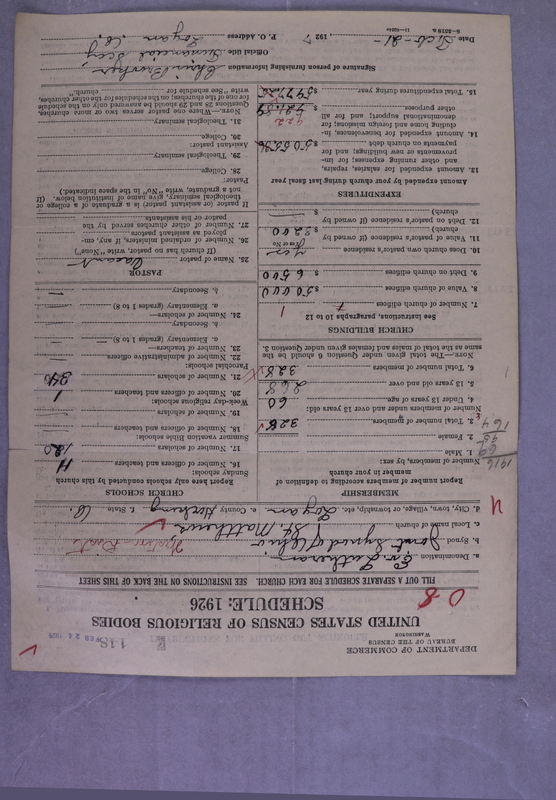 DEPARTMENT OF COMMERCE
BUREAU OF THE CENSUS
WASHINGTON
E 118
FEB 24 1928
UNITED STATES CENSUS OF RELIGIOUS BODIES
SCHEDULE: 1926
0-8
FILL OUT A SEPARATE SCHEDULE FOR EACH CHURCH. SEE INSTRUCTIONS ON THE BACK OF THIS SHEET
a. Denomination Ev. Lutheran
b. Synod Joint Synod of Ohio
c. Local name of church St. Matthews
d. City, town, village, or township, etc. Logan e. County Hocking f. State O.
MEMBERSHIP
Report number of members according to definition of
member in your church
Number of members, by sex:
1. Male
2. Female
3. Total number of members 328
Number of members under and over 13 years old:
4. Under 13 years of age 60
5. 13 years old and over 268
6. Total number of members 328
NOTE.—The total given under Question 6 should be the
same as the total of males and females given under Question 3.
CHURCH BUILDINGS
See instructions, paragraphs 10 to 12
7. Number of church edifices 1
8. Value of church edifices $50000
9. Debt on church edifices $6500
10. Does church own pastor's residence yes
(Yes or No)
11. Value of pastor's residence (if owned by
church) $3200
12. Debt on pastor's residence (if owned by
church) $
EXPENDITURES
Amount expended by your church during last fiscal year
13. Amount expended for salaries, repairs,
and other running expenses; for im-
provements or new buildings; and for
payments on church debt $
14. Amount expended for benevolences, in-
cluding home and foreign missions; for
denominational support; and for all
other purposes
15. Total expenditures during year $
CHURCH SCHOOLS
Report here only schools conducted by this church
Sunday schools:
16. Number of officers and teachers 11
17. Number of scholars 120
Summer vacation Bible schools:
18. Number of officers and teachers
19. Number of scholars
Week-day religious schools:
20. Number of officers and teachers 1
21. Number of scholars
Parochial schools:
22. Number of administrative officers
23. Number of teachers—
a. Elementary (grades 1 to 8)
b. Secondary
24. Number of scholars—
a. Elementary (grades 1 to 8)
b. Secondary
PASTOR
25. Name of pastor Vacant
(If church has no pastor, write "None")
26. Number of ordained ministers, if any, em-
ployed as assistant pastors
27. Number of other churches served by the
pastor or his assistants
If pastor (or assistant pastor) is a graduate of a college or
theological seminary, give name of institution below. (If
not a graduate, write "No" in the space indicated.)
Pastor:
28. College
29. Theological seminary
Assistant pastor:
30. College
31. Theological seminary
NOTE.—Where one pastor serves two or more churches,
Questions 28 and 29 should be answered only on the schedule
for one of the churches; on the schedules for the other churches,
write "See schedule for church."
Signature of person furnishing information
Official title Financial Secy
Date , 1927 P. O. Address Logan, O.
8-5518a
11-9260